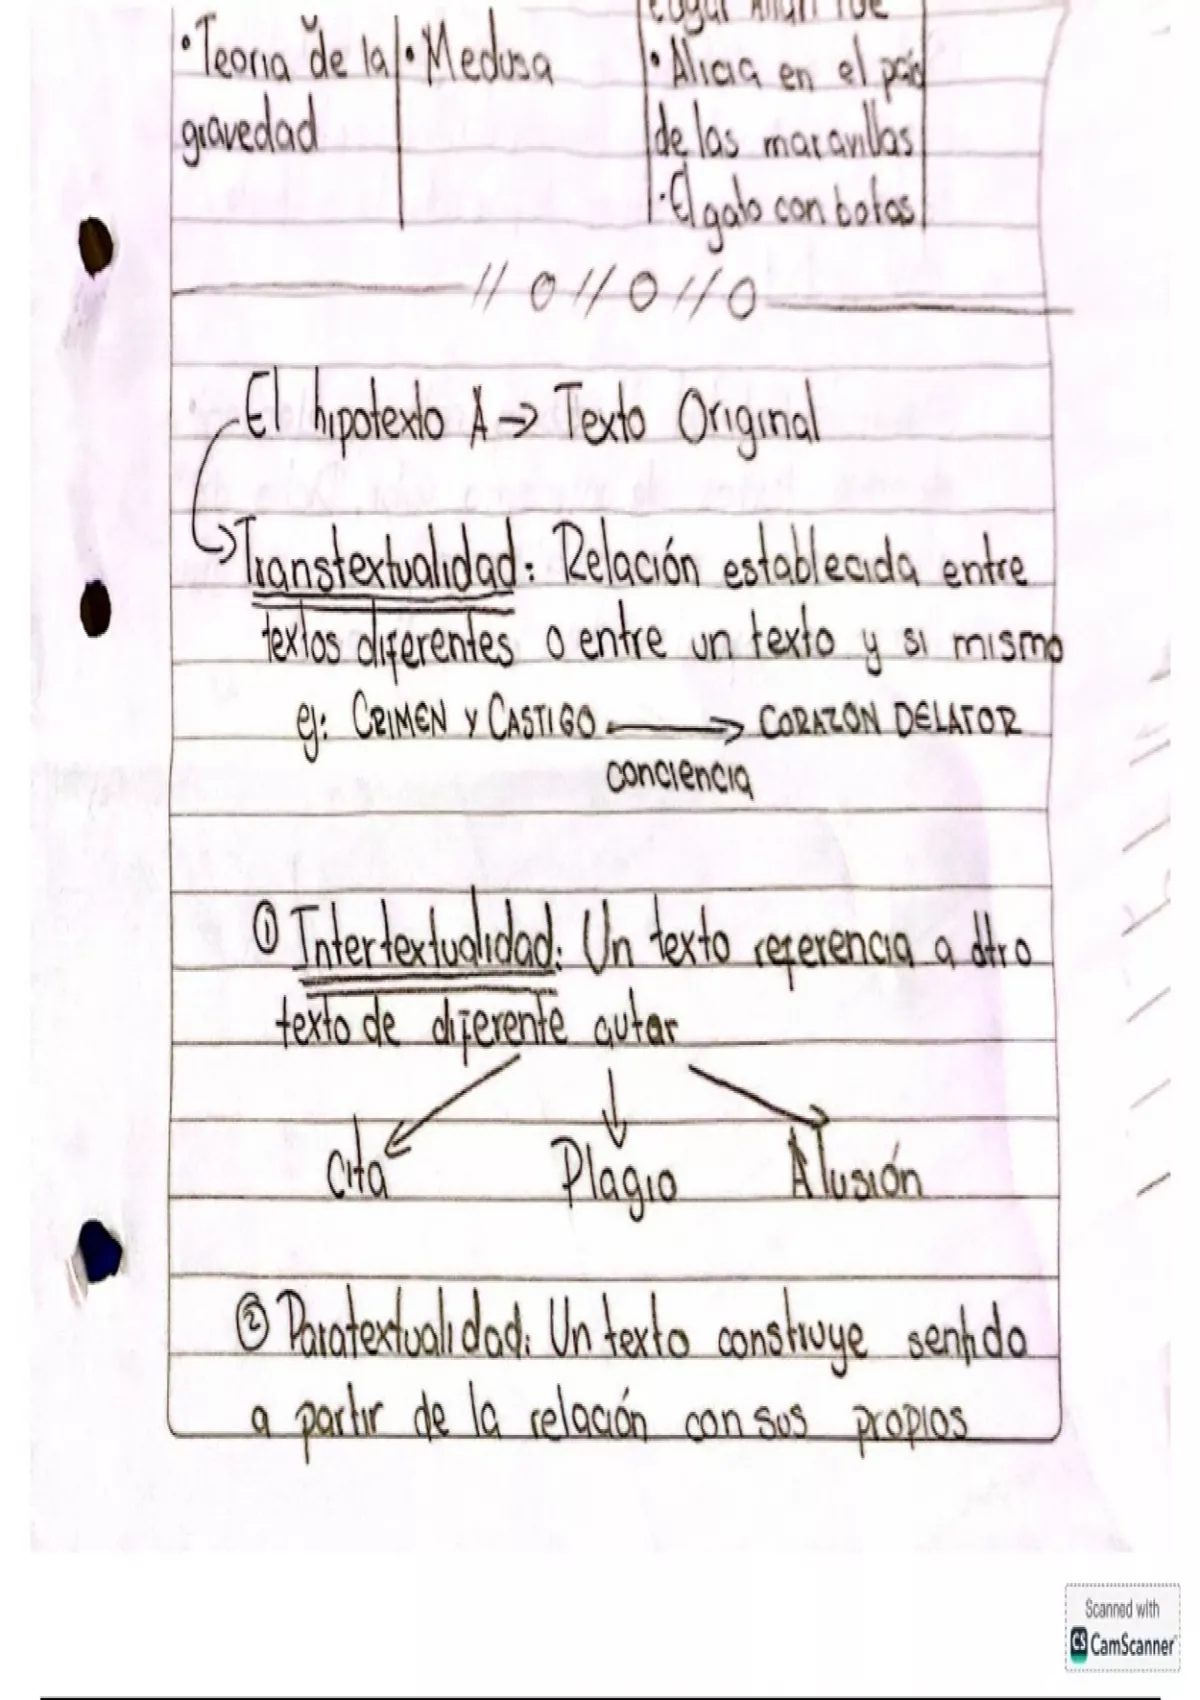 Edgar Allan Poe
• Teoria de la • Medusa • Alicia en el país
gravedad de las maravillas
• El gato con botas
// O // O // O
El hipotexto A → Texto Original
Transtextualidad: Relación establecida entre
textos diferentes o entre un texto y si mismo
ej: CRIMEN Y CASTIGO → CORAZON DELATOR
conciencia
① Intertextualidad: Un texto referencia a otro
texto de diferente autor
Cita Plagio Alusión
② Paratextualidad: Un texto construye sentido
a partir de la relación con sus propios
Scanned with
CS CamScanner